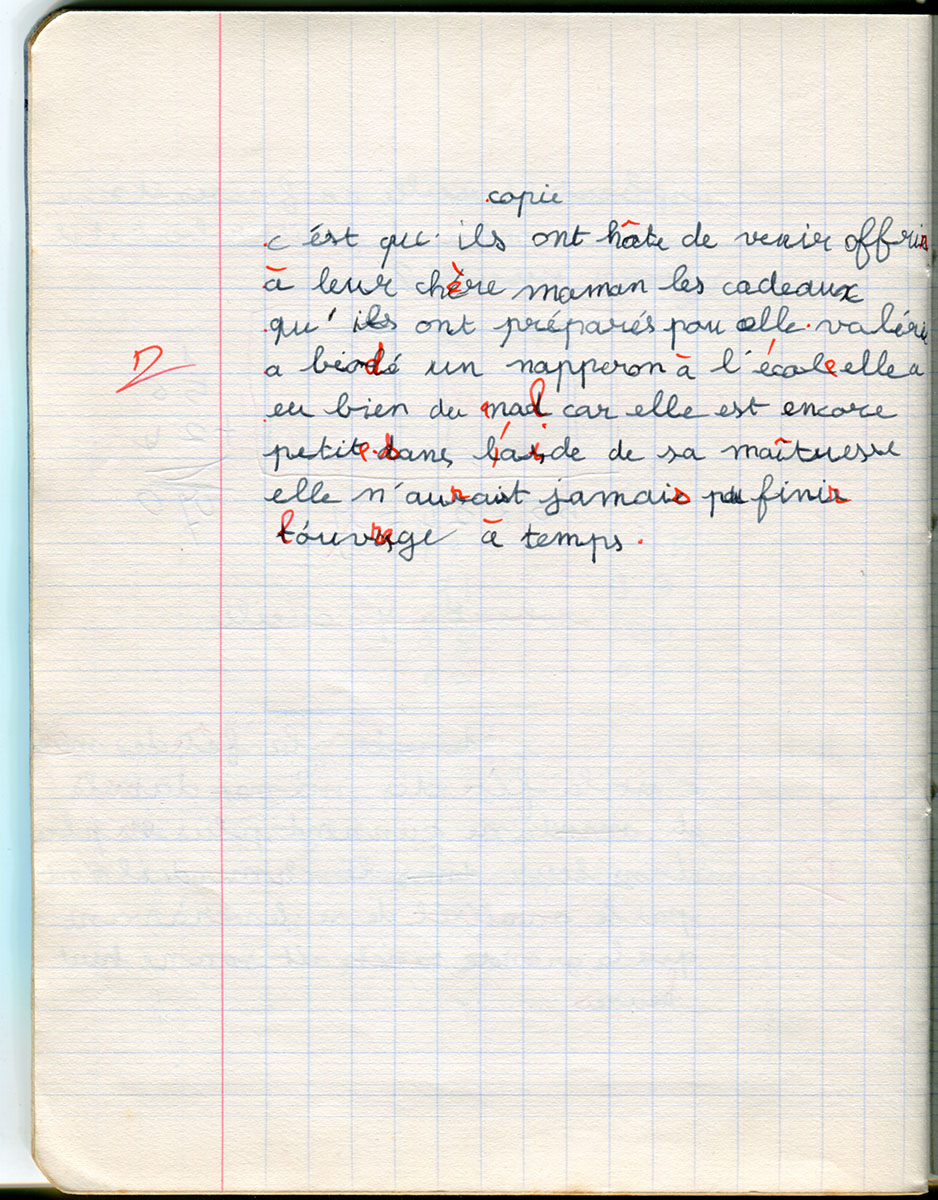 copie
c'est que ils ont hâte de venir offrir
à leur chère maman les cadeaux
qu'ils ont préparés pou elle. valérie
a biodé un napperon à l'école elle a
eu bien du mal car elle est encore
petite. sans l'aide de sa maîtuesse
elle n'aurait jamais pu finir
l'ouvrage à temps.